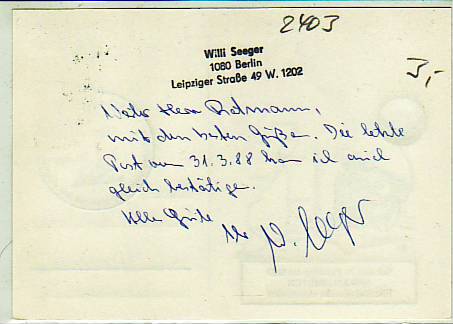 2403
Willi Seeger
1080 Berlin
Leipziger Straße 49 W. 1202
3,-
Herr
mit den besten Grüßen. Die letzte
Post vom 31.3.88 kan ich auch
gleich bestätigen.
Alles Gute
Ihr W. Seeger